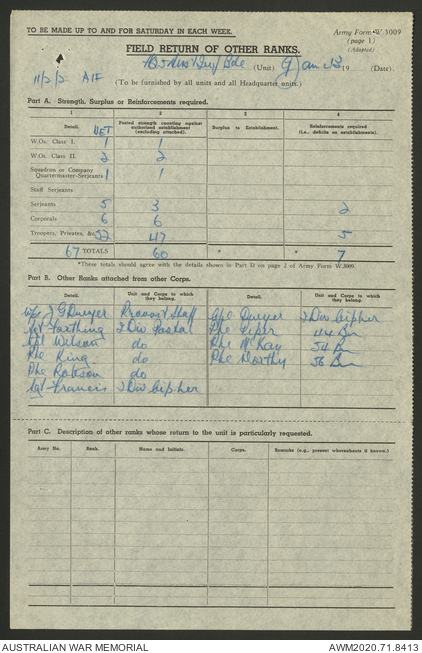 TO BE MADE UP TO AND FOR SATURDAY IN EACH WEEK.
Army Form W.3009
(page 1)
(Adapted)
FIELD RETURN OF OTHER RANKS.
11/2/2 AIF
(Unit) 9 Jan 43 19 (Date).
(To be furnished by all units and all Headquarter units.)
Part A. Strength, Surplus or Reinforcements required.
1 2 3 4
Detail. WET Posted strength counting against authorized establishment (excluding attached). Surplus to Establishment. Reinforcements required (i.e., deficits on establishments).
W.Os. Class I. 1 1
W.Os. Class II. 2 2
Squadron or Company Quartermaster-Serjeants 1 1
Staff Serjeants
Serjeants 5 3 2
Corporals 6 6
Troopers, Privates, &c. 52 47 5
67 TOTALS 60 * * 7
*These totals should agree with the details shown in Part D on page 2 of Army Form W.3009.
Part B. Other Ranks attached from other Corps.
Detail. Unit and Corps to which they belong. Detail. Unit and Corps to which they belong.
J G Dwyer Provost Staff Cpl Dwyer 2 Div Cipher
Farthing 2 Div Postal Pte 44 Bn
Wilson do Pte McKay 54 Bn
Pte King do Pte Worthy 36 Bn
Pte Robson do
Sgt Francis 2 Div Cipher
Part C. Description of other ranks whose return to the unit is particularly requested.
Army No. Rank. Name and Initials. Corps. Remarks (e.g., present whereabouts if known.)
AUSTRALIAN WAR MEMORIAL
AWM2020.71.8413